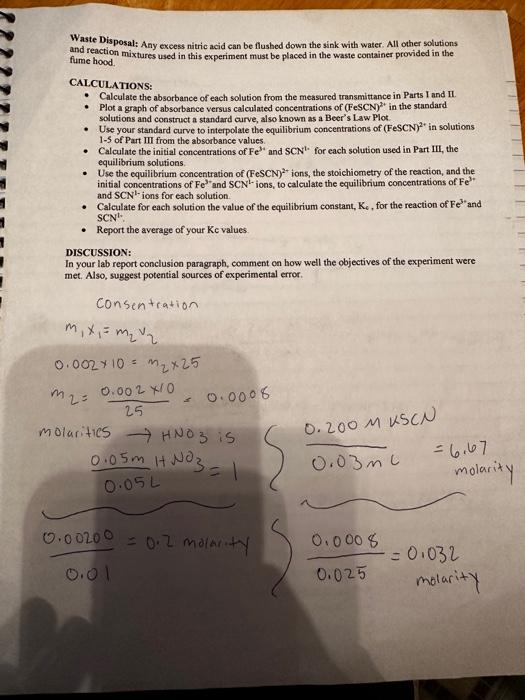 Waste Disposal: Any excess nitric acid can be flushed down the sink with water. All other solutions
and reaction mixtures used in this experiment must be placed in the waste container provided in the
fume hood.
CALCULATIONS:
• Calculate the absorbance of each solution from the measured transmittance in Parts I and II.
• Plot a graph of absorbance versus calculated concentrations of (FeSCN)²⁺ in the standard
solutions and construct a standard curve, also known as a Beer's Law Plot.
• Use your standard curve to interpolate the equilibrium concentrations of (FeSCN)²⁺ in solutions
1-5 of Part III from the absorbance values.
• Calculate the initial concentrations of Fe³⁺ and SCN¹⁻ for each solution used in Part III, the
equilibrium solutions.
• Use the equilibrium concentration of (FeSCN)²⁺ ions, the stoichiometry of the reaction, and the
initial concentrations of Fe³⁺ and SCN¹⁻ ions, to calculate the equilibrium concentrations of Fe³⁺
and SCN¹⁻ ions for each solution.
• Calculate for each solution the value of the equilibrium constant, Kc, for the reaction of Fe³⁺and
SCN¹⁻.
• Report the average of your Kc values.
DISCUSSION:
In your lab report conclusion paragraph, comment on how well the objectives of the experiment were
met. Also, suggest potential sources of experimental error.
Consentration
m₁x₁ = m₂v₂
0.002×10 = m₂×25
m₂ = 0.002×10 / 25 = 0.0008
molarities → HNO3 is
0.05m HNO3 / 0.05L = 1
0.200 M KSCN / 0.03mL = 6.67
molarity
0.00200 / 0.01 = 0.2 molarity
0.0008 / 0.025 = 0.032
molarity